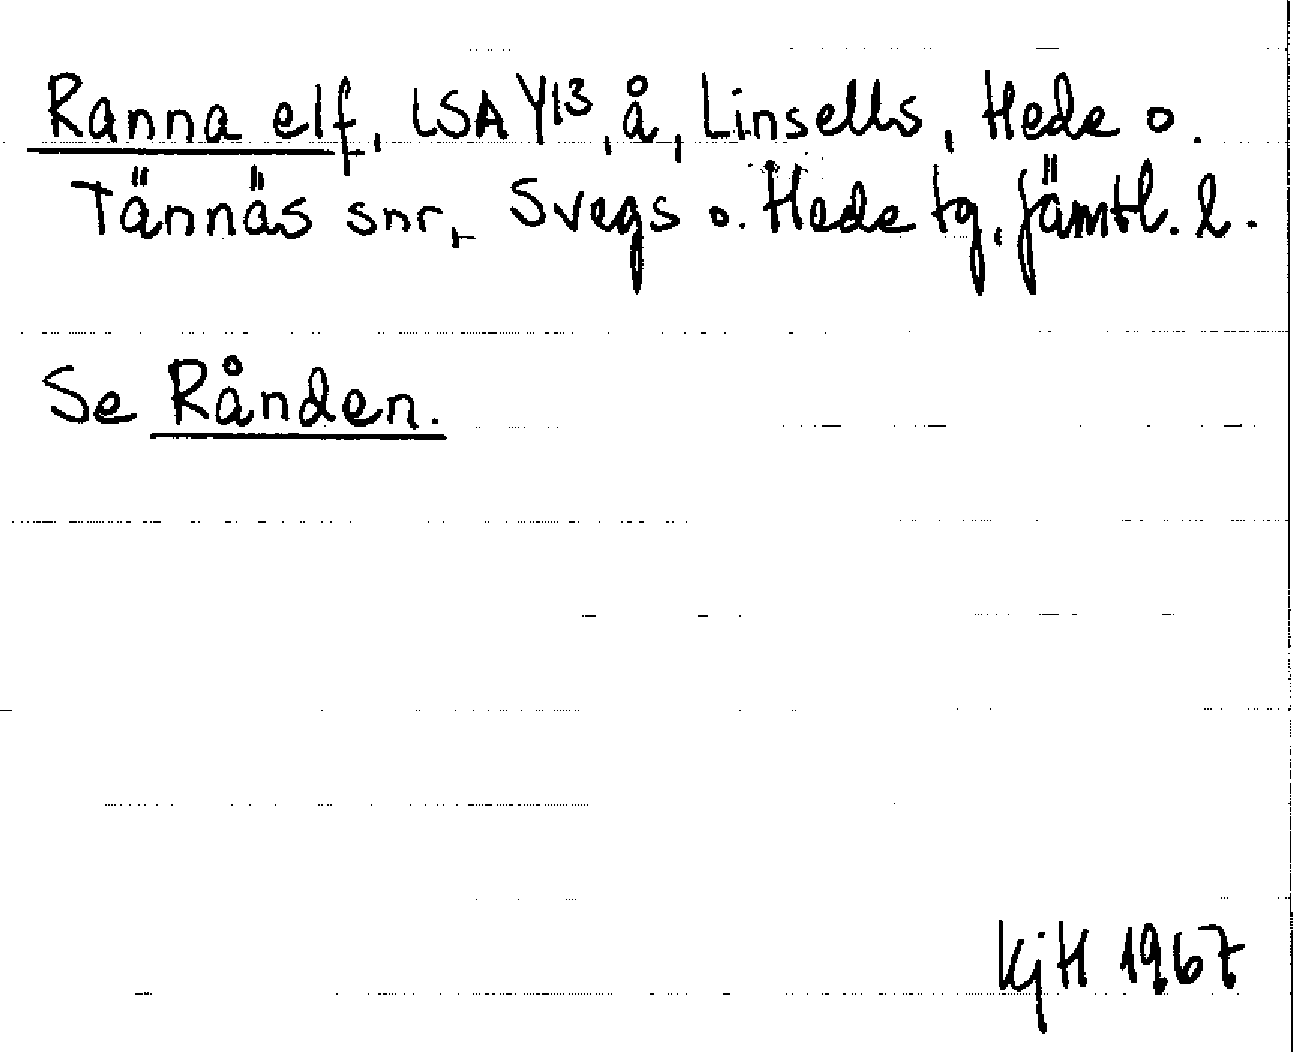 Ranna elf, LSA Y13, å, Linsells, Hede o.
Tännäs snr, Svegs o. Hede tg, Jämtl. l.
Se Rånden.
KjH 1967